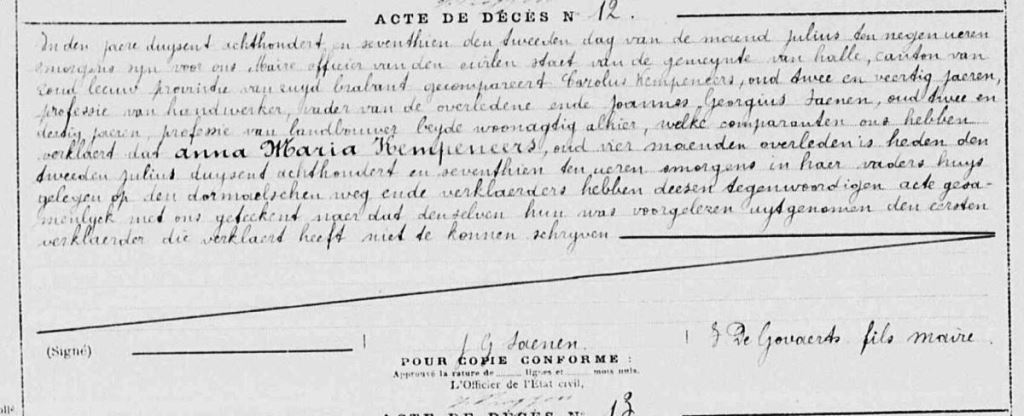 ACTE DE DÉCÈS N° 12.
In den jaere duysent achthondert en seventhien den tweeden dag van de maend julius ten negen ueren
smorgens syn voor ons Maire officier van den civilen staet van de gemeynte van halle, canton van
Zout leeuw provintie van zuyd brabant gecompareert Carolus Kempeneers, oud twee en veertig jaeren,
professie van handwerker, vader van de overledene ende Joannes Georgius Jaenen, oud twee en
dertig jaeren, professie van landbouwer beyde woonagtig alhier, welke comparanten ons hebben
verklaert dat anna Maria Kempeneers, oud vier maenden overleden is heden den
tweeden julius duysent achthondert en seventhien ten ueren smorgens in haer vaders huys
gelegen op den dormaelschen weg ende verklaerders hebben deesen tegenwoordigen acte gesa-
menlyck met ons geteekent naer dat denselven hun was voorgelezen uytgenomen den eersten
verklaerder die verklaert heeft niet te konnen schryven
(Signé) J G Jaenen. De Govaerts fils maire.
POUR COPIE CONFORME :
Approuvé la rature de lignes et mots nuls.
L'Officier de l'État civil,
ACTE DE DÉCÈS N° 13